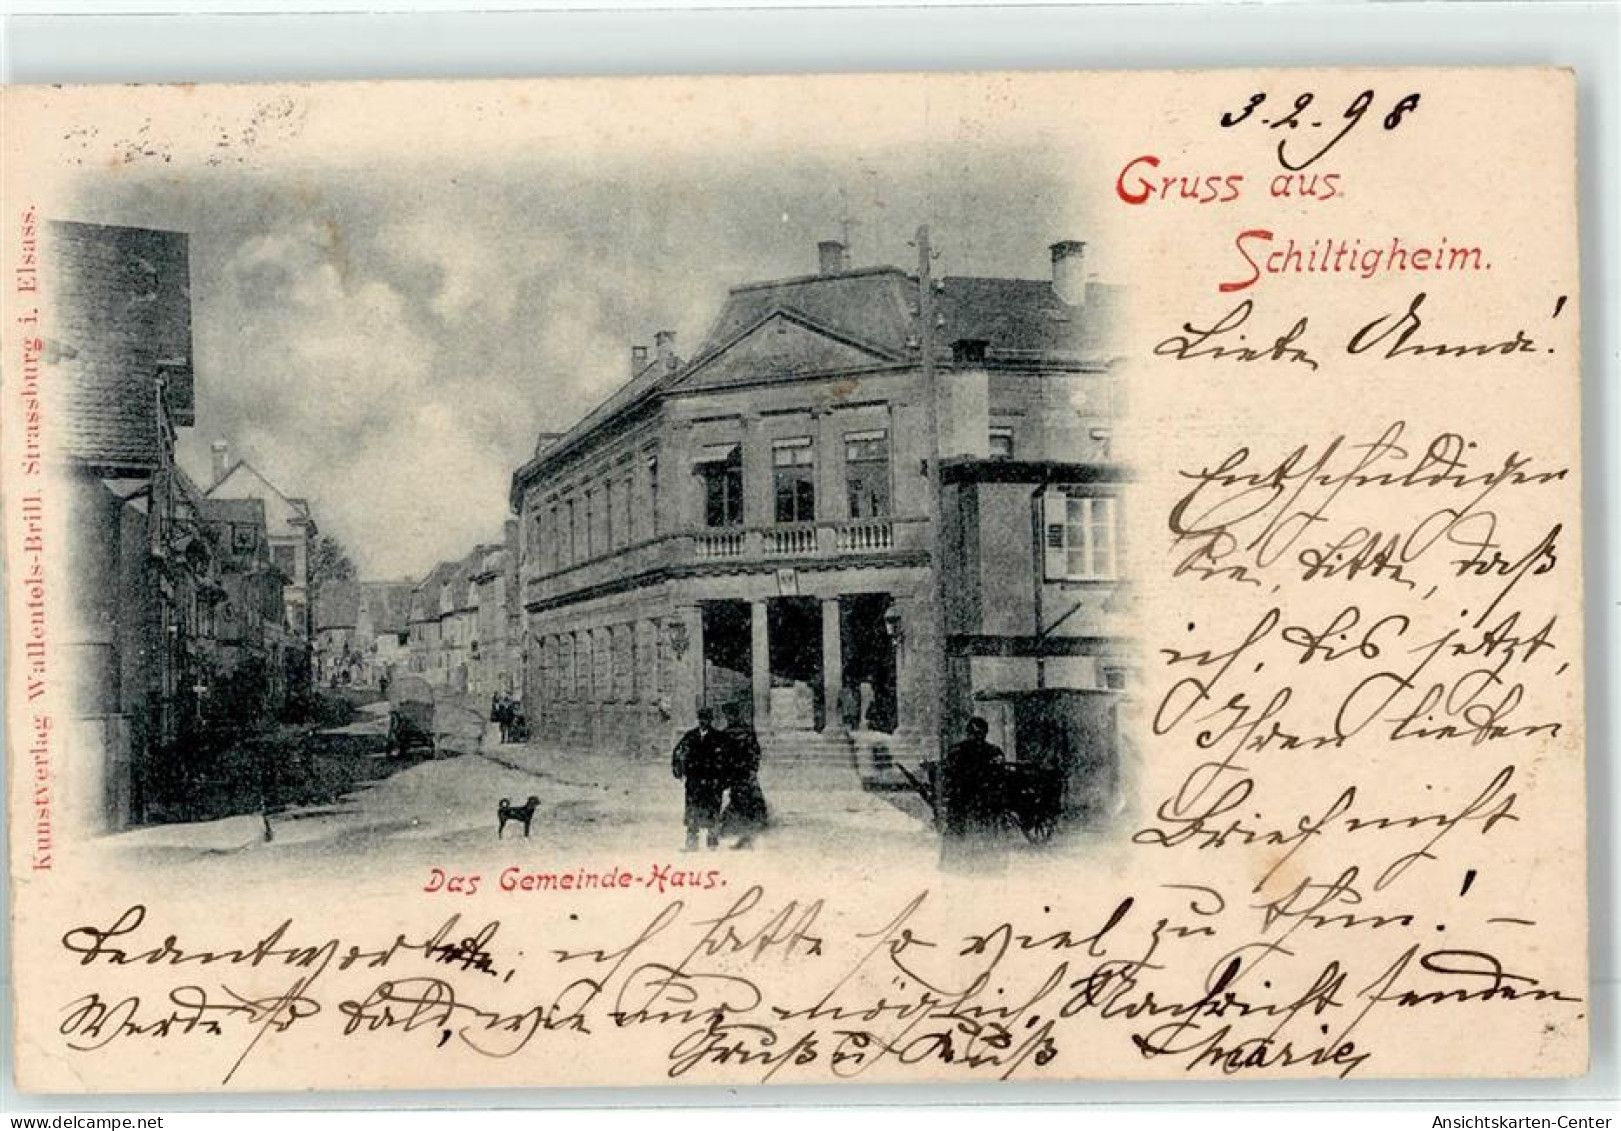 3.2.98
Gruss aus
Schiltigheim.
Liebe Anna!
Entschuldigen
Sie, bitte, daß
ich, bis jetzt,
Ihren lieben
Brief nicht
beantwortete, ich hatte so viel zu thun! –
Werde so bald, wie nur möglich, Nachricht senden.
Gruß u Kuß Marie
Das Gemeinde-Haus.
Kunstverlag Wallenfels-Brill. Strassburg i. Elsass.
Ansichtskarten-Center